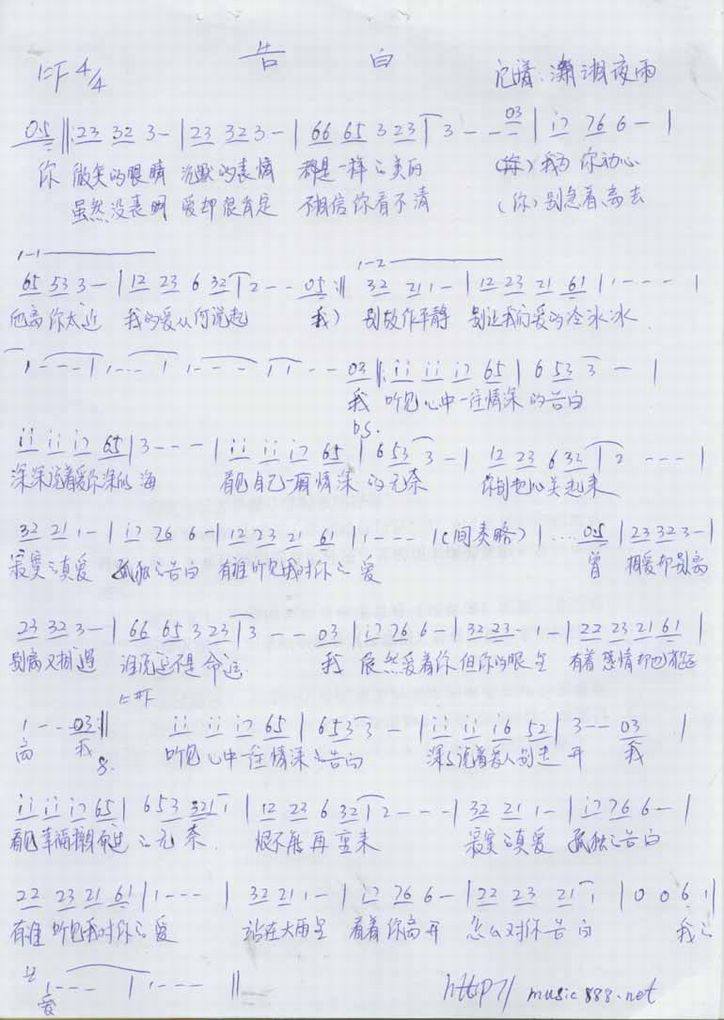 告 白
1=F 4/4 记谱:潇湘夜雨
05 ‖: 23 32 3- | 23 32 3- | 66 65 3 23 | 3 - - 03 | i7 76 6 - |
你 微笑的眼睛 沉默的表情 都是一样的美丽 (你) 我为你动心
虽然没表明 爱却很肯定 不相信你看不清 (你) 别急着离去
1-1 1-2
65 53 3 - | 12 23 6 32 | 2 - - 05 :‖ 32 21 1 - | 12 23 21 61 | 1 - - - |
他离你太近 我的爱从何说起 我) 别故作平静 别让我的爱的冷冰冰
1 - - - | 1 - - - | 1 - - - | 1 - - 03 ‖: ii ii i7 65 | 6 53 3 - |
我 听见心中一往情深的告白
D.S.
ii ii i7 65 | 3 - - - | ii ii i7 65 | 6 53 3 - | 12 23 6 32 | 2 - - - |
深深说着爱你深似海 看见自己一厢情深的无奈
32 21 1 - | i7 76 6 - | 12 23 21 61 | 1 - - - | (间奏略) | .... 05 | 23 32 3 - |
寂寞的真爱 孤独的告白 有谁听见我对你的爱 曾 相爱却别离
23 32 3 - | 66 65 3 23 | 3 - - 03 | i7 76 6 - | 32 23 - 1 - | 22 23 21 61 |
别离又相遇 谁说这不是命运 我 依然爱着你 但你的眼里 有着感情却也有距
1 - - 03 :‖ ii ii i7 65 | 6 53 3 - | ii ii i6 52 | 3 - - 03 |
离 我 听见心中一往情深的告白 深深说着爱人别走开 我
ii ii i7 65 | 6 53 321 | 12 23 6 32 | 2 - - - | 32 21 1 - | i7 76 6 - |
看见幸福擦肩而过的无奈 恨不能再重来 寂寞的真爱 孤独的告白
22 23 21 61 | 1 - - - | 32 21 1 - | i7 76 6 - | 22 23 21 | 0 0 6 1 |
有谁听见我对你的爱 站在大雨里 看着你离开 怎么对你告白 我的
1 - - - | 1 - - - ‖
爱 http// music888.net